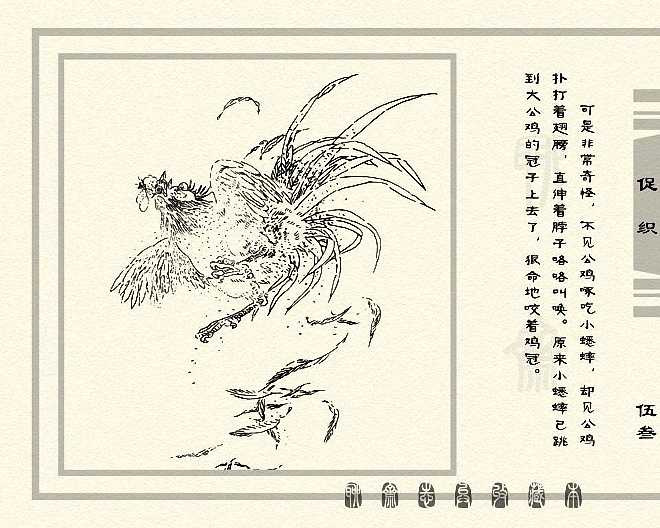 可是非常奇怪，不见公鸡啄吃小蟋蟀，却见公鸡
扑打着翅膀，直伸着脖子咯咯叫唤。原来小蟋蟀已跳
到大公鸡的冠子上去了，狠命地咬着鸡冠。
促织
伍叁